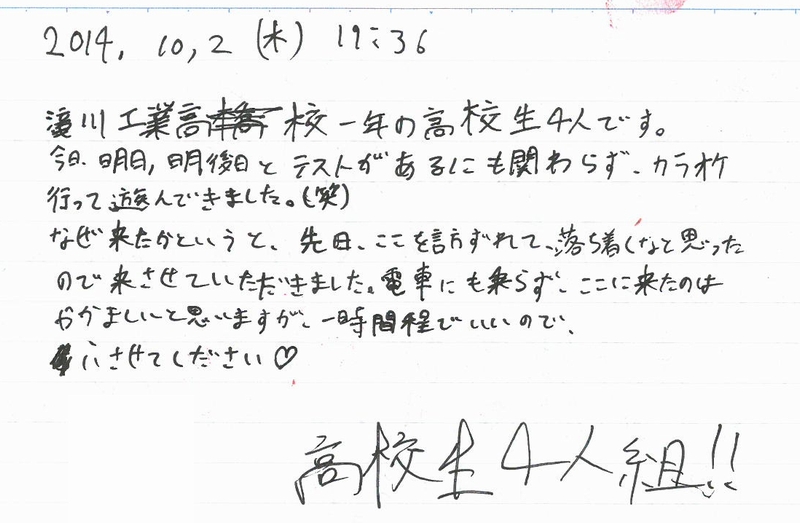 2014. 10, 2 (木) 19:36
濱川工業高校一年の高校生4人です。
今日、明日、明後日とテストがあるにも関わらず、カラオケ
行って遊んできました。(笑)
なぜ来たかというと、先日、ここを訪ずれて、落ち着くなと思った
ので来させていただきました。電車にも乗らず、ここに来たのは
やかましいと思いますが、一時間程でいいので、
いさせてください♡
高校生4人組!!